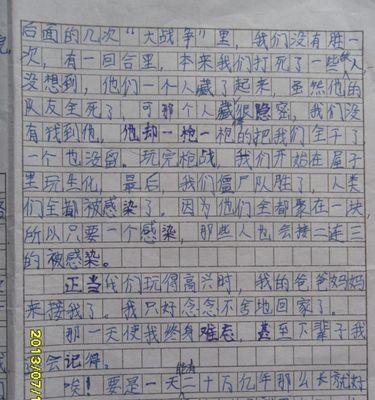 后面的几次“大战争”里，我们没有胜一
次，有一回合里，本来我们打死了一些敌人
没想到，他们一个人藏了起来，虽然他的
队友全死了，可那个人藏很隐密，我们没
有找到他，他却一枪一枪的把我们全干了
一个也没留。玩完枪战，我们开始在屋子
里玩生化，最后，我们僵尸队胜了，人类
们全都被感染了。因为他们全都聚在一块，
所以只要一个感染，那些人也会接二连三
的被感染。
正当我们玩得高兴时，我的爸爸妈妈
来接我了。我只好念念不舍地回家了。
那一天使我终身难忘，甚至下辈子我
会记得。
唉！要是一天能有二十万亿年那么长就好
2013/07/1